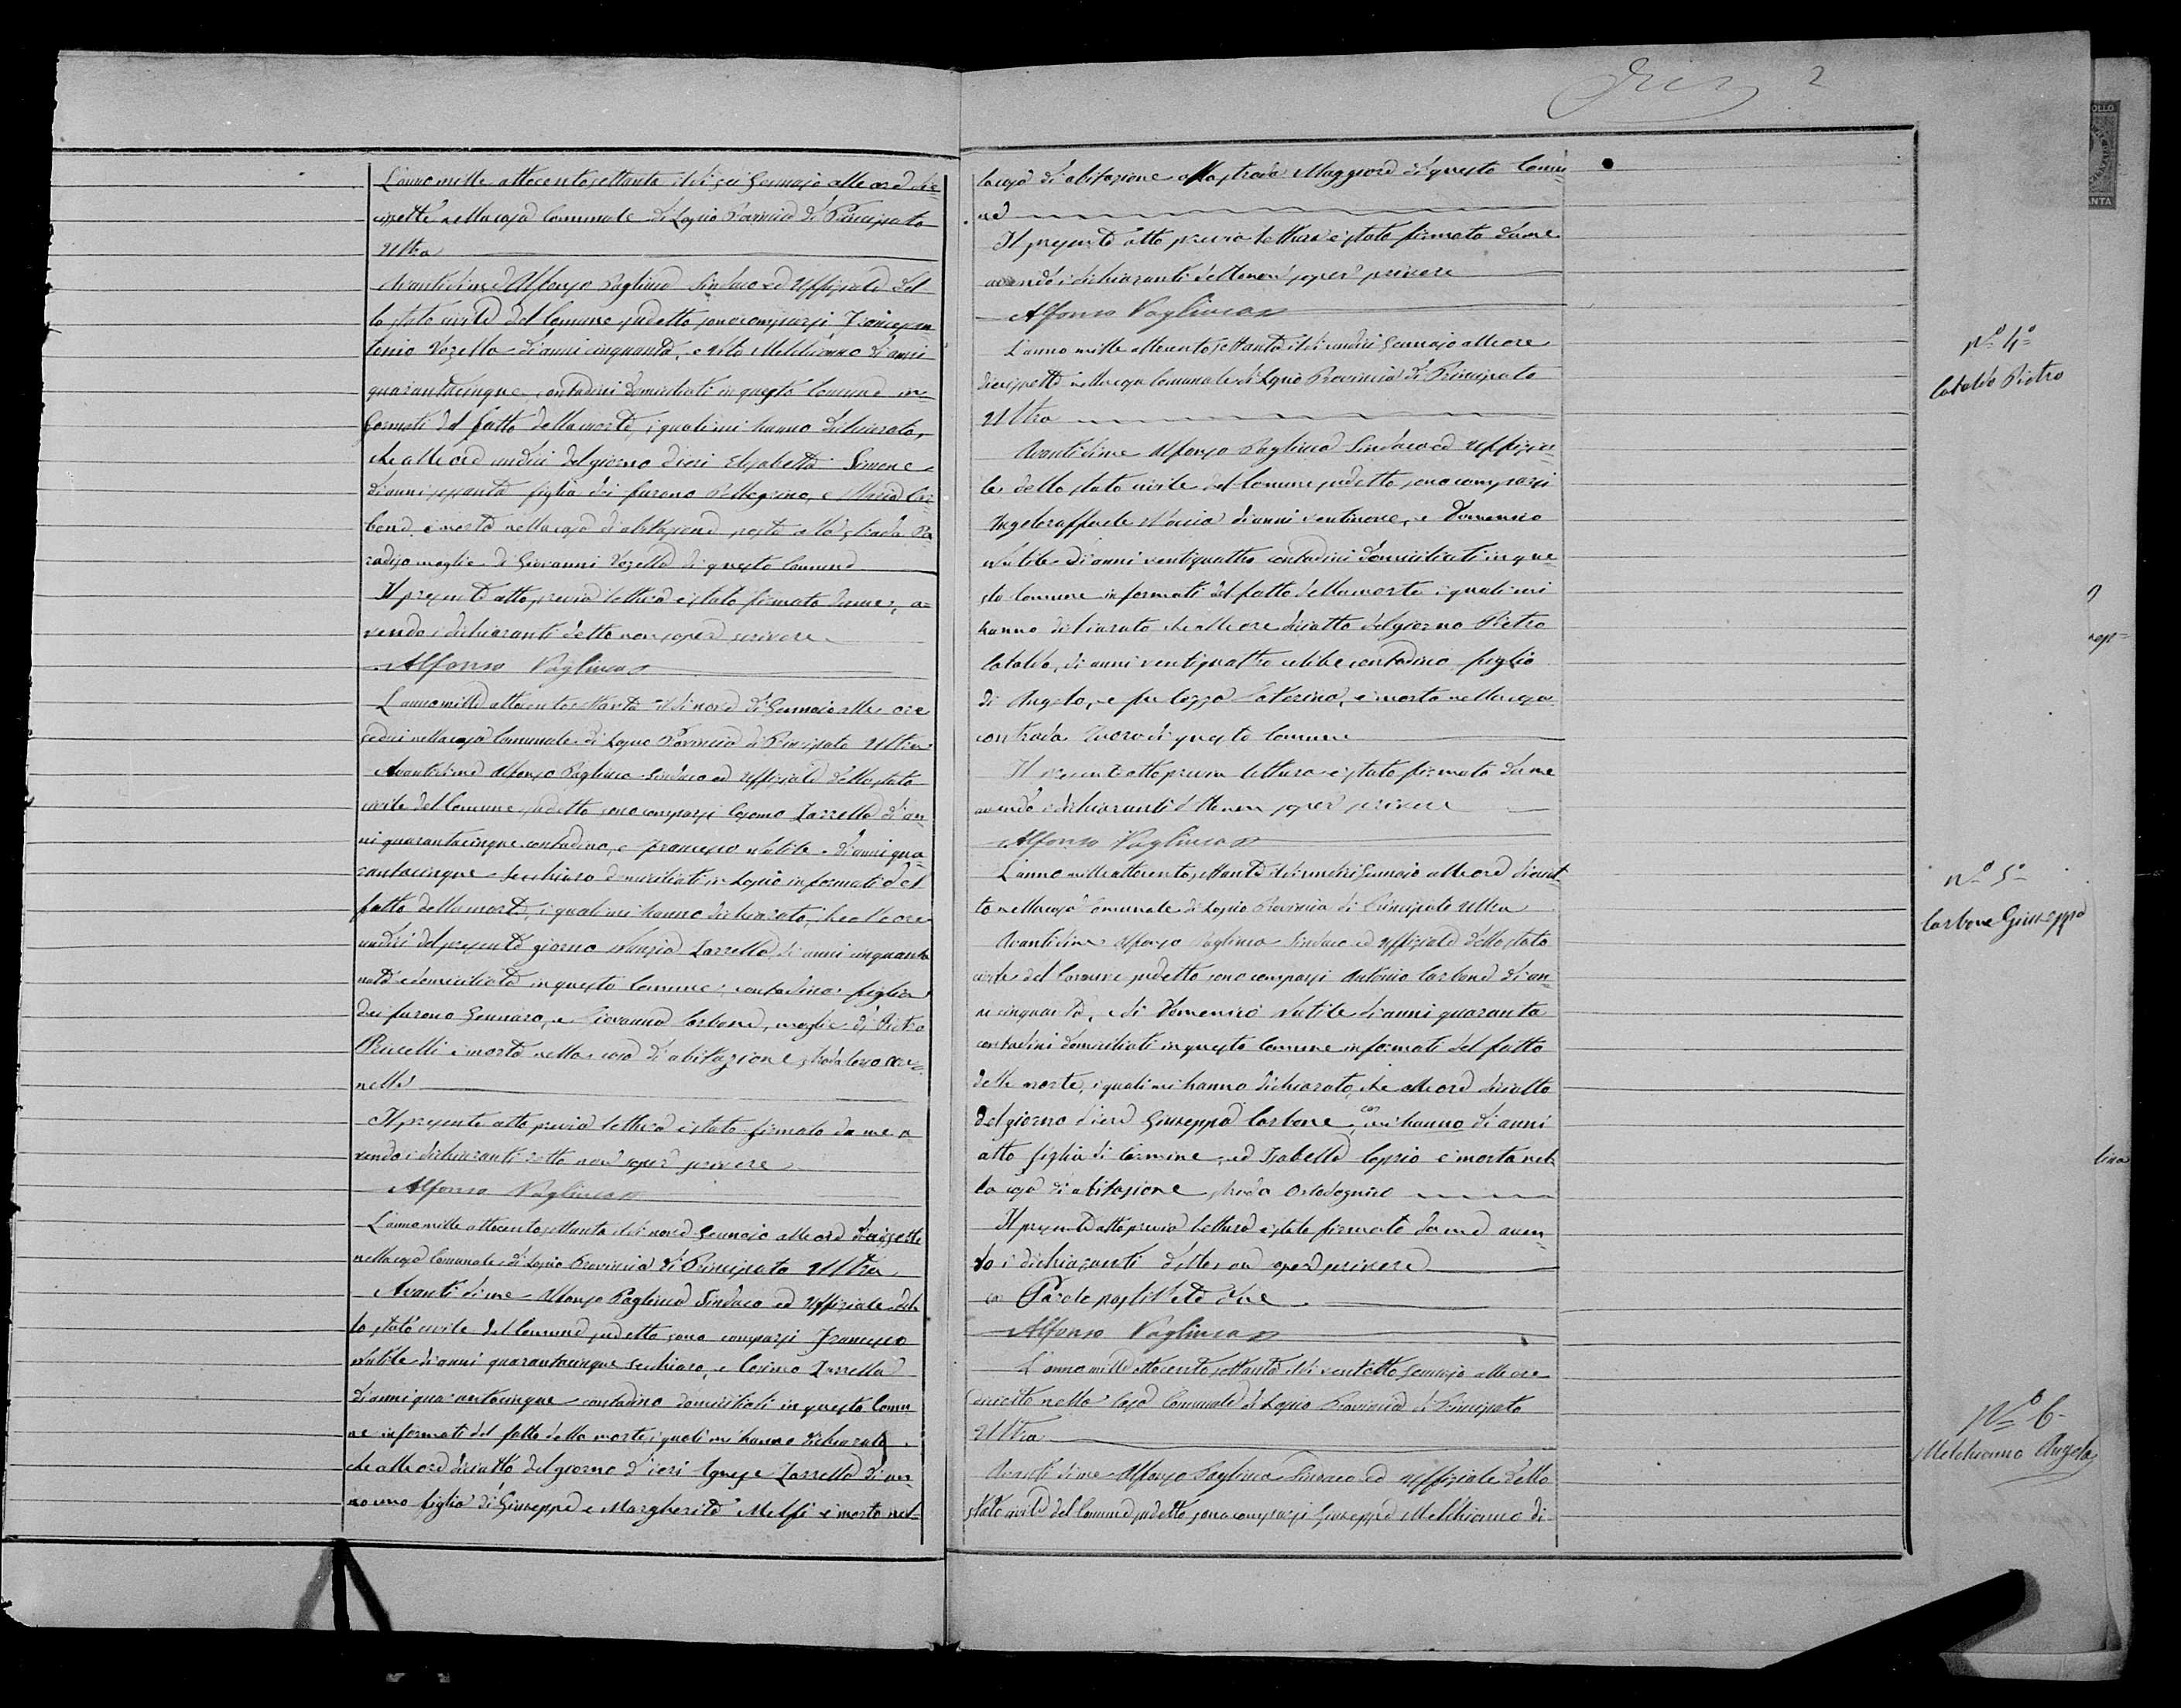 L'anno mille ottocento settanta il dì sei Gennajo alle ore die
cisette nella casa Comunale di Lapio Provincia di Principato
Ultra
Avanti di me Alfonso Pagliuca Sindaco ed Uffiziale del
lo stato civile del Comune sudetto sono comparsi Francescan
tonio Vozella d'anni cinquanta, e Vito Melchionno d'anni
quarantacinque, contadini domiciliati in questo Comune in=
formati del fatto della morte, i quali mi hanno dichiarato,
che alle ore undici del giorno d'ieri Elisabetta Simone
d'anni sessanta figlia dei furono Pellegrino, e Maria Car
bone, è morta nella casa d'abitazione posta alla strada Pa
radiso moglie di Giovanni Vozella di questo Comune
Il presente atto, previa lettura è stato firmato da me, a=
vendo i dichiaranti detto non saper scrivere
Alfonso Pagliuca
L'anno mille ottocento settanta il dì nove di Gennaio alle ore
sedici nella casa Comunale di Lapio Provincia di Principato Ultra
Avanti di me Alfonso Pagliuca Sindaco ed Uffiziale dello stato
civile del Comune sudetto sono comparsi Cosomo Zarrella di an
ni quarantacinque contadino, e Francesco Nutile d'anni qua=
rantacinque Secchiaro domiciliati in Lapio informati del
fatto della morte, i quali mi hanno dichiarato, che alle ore
undici del presente giorno Nunzia Zarrella, di anni cinquanta
nata e domiciliata in questo Comune, contadina figlia
dei furono Gennaro, e Giovanna Carbone, moglie di Pietro
è morta nella casa di abitazione strada
nella
Il presente atto previa lettura è stato firmato da me a
vendo i dichiaranti detto non saper scrivere
Alfonso Pagliuca
L'anno mille ottocento settanta il dì nove Gennaio alle ore diecissette
nella casa Comunale di Lapio Provincia di Principato Ultra
Avanti di me Alfonso Pagliuca Sindaco ed Uffiziale del
lo stato civile del Comune sudetto sono comparsi Francesco
Nutile di anni quarantacinque secchiaro, e Cosimo Zarrella
d'anni quarantacinque contadino domiciliati in questo Comu
ne informati del fatto della morte, i quali mi hanno dichiarato
che alle ore dieciotto del giorno d'ieri Agnese Zarrella di an=
no uno figlia di Giuseppe e Margherita Melfi è morta nel=
2
la casa di abitazione alla strada Maggiore di questo Comu=
ne
Il presente atto previa lettura è stato firmato da me
avendo i dichiaranti detto non saper scrivere
Alfonso Pagliuca
L'anno mille ottocento settanta il dì undici Gennajo alle ore
diecisette nella casa Comunale di Lapio Provincia di Principato
Ultra
Avanti di me Alfonso Pagliuca Sindaco ed Uffizia=
le dello stato civile del Comune sudetto sono comparsi
Angeloraffaele di anni ventinove, e Domenico
Nutile di anni ventiquattro contadini domiciliati in que=
sto Comune informati del fatto della morte i quali mi
hanno dichiarato che alle ore dieciotto del giorno Pietro
Cataldo, di anni ventiquattro celibe contadino figlio
di Angelo, e fu Caterina, è morto nella casa
contrada di questo Comune
Il presente atto previa lettura è stato firmato da me
avendo i dichiaranti detto non saper scrivere
Alfonso Pagliuca
L'anno mille ottocento settanta il dì Gennajo alle ore dieciot
to nella casa Comunale di Lapio Provincia di Principato Ultra
Avanti di me Alfonso Pagliuca Sindaco ed Uffiziale dello stato
civile del Comune sudetto sono comparsi Antonio Carbone di an=
ni cinquanta, e di Domenico Nutile di anni quaranta
contadini domiciliati in questo Comune informati del fatto
della morte, i quali mi hanno dichiarato, che alle ore dieciotto
del giorno d'ieri Giuseppa Carbone, mi hanno di anni
otto figlia di Carmine, ed Isabella Caprio è morta nel=
la casa di abitazione strada
Il presente atto previa lettura è stato firmato da me aven=
do i dichiaranti detto non saper scrivere
Parole due
Alfonso Pagliuca
L'anno mille ottocento settanta il dì ventotto Gennajo alle ore
dieciotto nella Casa Comunale di Lapio Provincia di Principato
Ultra
Avanti di me Alfonso Pagliuca Sindaco ed Uffiziale dello
stato civile del Comune sudetto sono comparsi Giuseppe Melchionno di
N.º 4º
Cataldo Pietro
N.º 5º
Carbone Giuseppa
N.º 6
Melchionno Angela